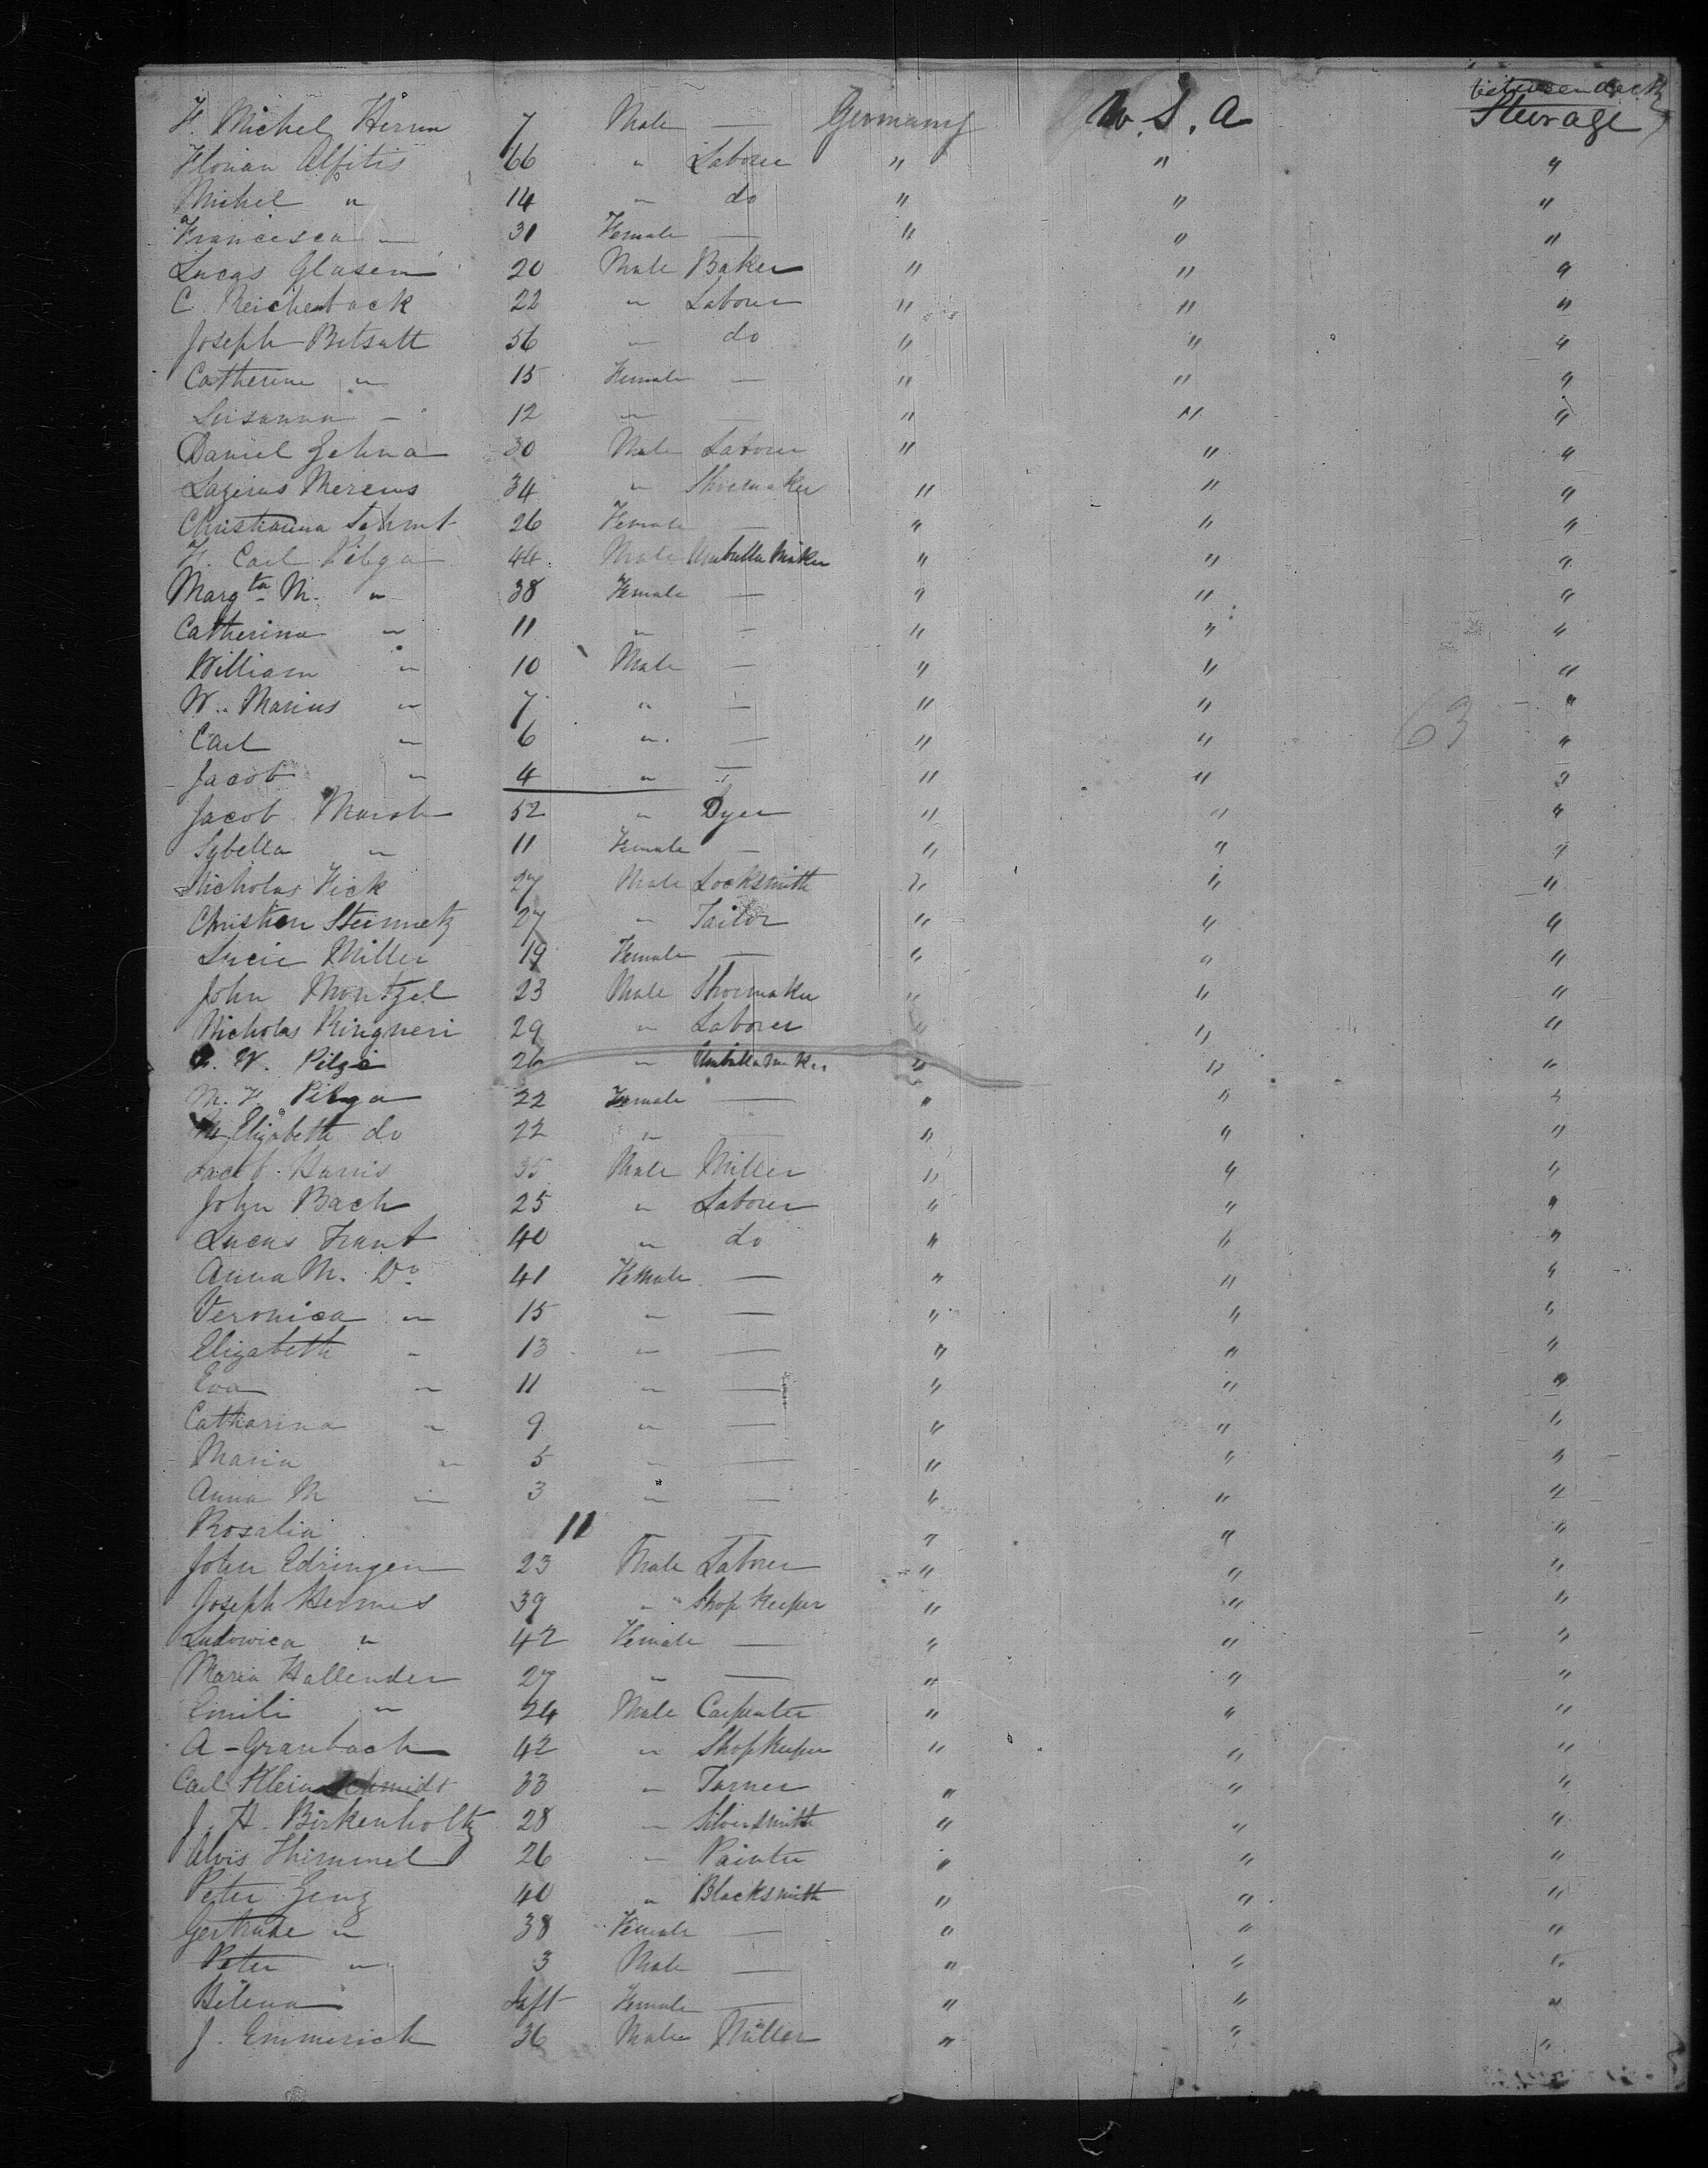 between deck
H. Michel Hirun 7 Male — Germany U. S. A Steerage
Florian Alfitis 66 " Laborer " " "
Michel " 14 " do " " "
Francisca " 31 Female — " " "
Lucas Glasen 20 Male Baker " " "
C. Reichenback 22 " Laborer " " "
Joseph Betsatt 56 " do " " "
Catherine " 15 Female — " " "
Susanna " 12 " — " " "
Daniel Zehna 30 Male Laborer " " "
Lazirus Mercus 34 " Shoemaker " " "
Christianna Schmt 26 Female — " " "
H. Carl Pilga 44 Male Umbrella Maker " " "
Marg ta M. " 38 Female — " " "
Catherina " 11 " — " " "
William " 10 Male — " " "
W. Marius " 7 " — " " "
Carl " 6 " — " " "
63
Jacob " 4 " — " " "
Jacob Marsh 52 " Dyer " " "
Sybella " 11 Female — " " "
Nicholas Fick 27 Male Locksmith " " "
Christian Steinmetz 27 " Tailor " " "
Lucie Miller 19 Female — " " "
John Montzel 23 Male Shoemaker " " "
Nicholas Ringneri 29 " Laborer " " "
W. Pilga 26 " Umbrella Maker " " "
M. F. Pilga 22 Female — " " "
M Elizabeth do 22 " — " " "
Jacob Harris 35 Male Miller " " "
John Bach 25 " Laborer " " "
Lucas Traut 40 " do " " "
Anna M. Do 41 Female — " " "
Veronica " 15 " — " " "
Elizabeth " 13 " — " " "
Eva " 11 " — " " "
Catharina " 9 " — " " "
Maria " 5 " — " " "
Anna M " 3 " — " " "
Rosalia 11 — " " "
John Edringen 23 Male Laborer " " "
Joseph Hermes 39 " Shop Keeper " " "
Ludowica " 42 Female — " " "
Maria Hallender 27 " — " " "
Emili " 24 Male Carpenter " " "
A - Graubach 42 " Shop Keeper " " "
Carl Kleinschmidt 33 " Turner " " "
J. H. Birkenholtz 28 " Silversmith " " "
Alvis Thimmel 26 " Painter " " "
Peter Zenz 40 " Blacksmith " " "
Gertrude " 38 Female — " " "
Peter " 3 Male — " " "
Helena Inft Female — " " "
J. Emmerich 36 Male Miller " " "